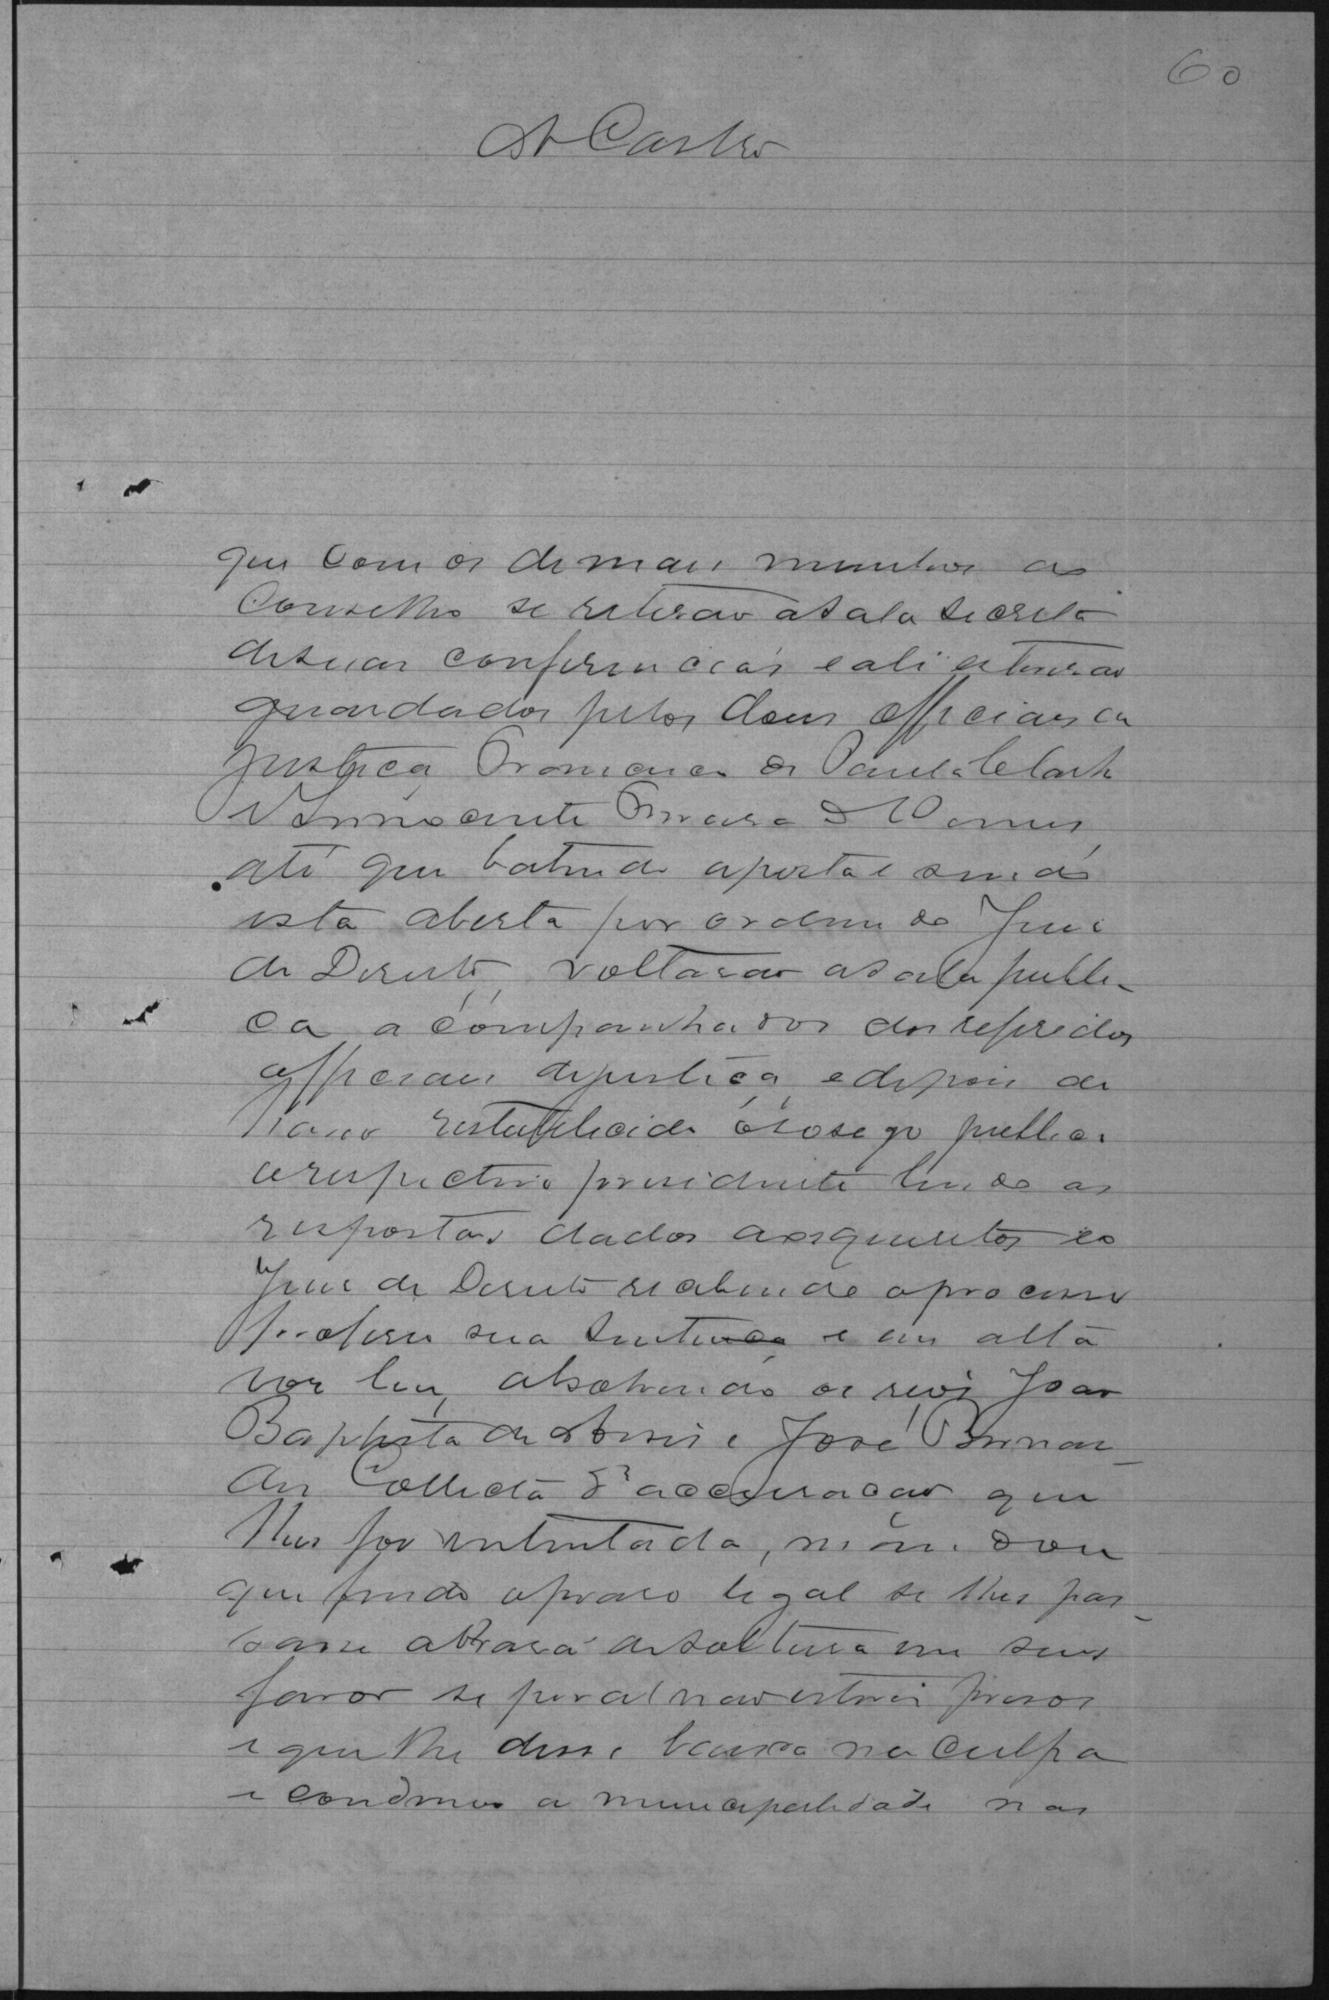 60
A Castro
que com os demais membros do
Conselho se retirão a sala secreta
de suas conferencias e ali estiverão
guardados pelos dous officiaes de
justiça de Paula
Innocente
até que batendo a porta e sendo
esta aberta por ordem do Juiz
de Direito, voltarão a sala publi-
ca acompanhados dos referidos
officiaes de justiça, e depois de
restabelecido o socego publico
o respectivo presidente lendo as
respostas dadas aos quesitos e o
Juiz de Direito recebendo o processo
proferiu sua sentença e em alta
voz leu, absolvendo os reos João
Baptista de Assis e José Bernar-
des Collecta d'accusação que
lhes foi intentada, mandou
que findo o praso legal se lhes pas-
sasse alvará de soltura em seus
favor se por al não estiver presos
e que lhe desse baixa na culpa
e condemnou a municipalidade nas